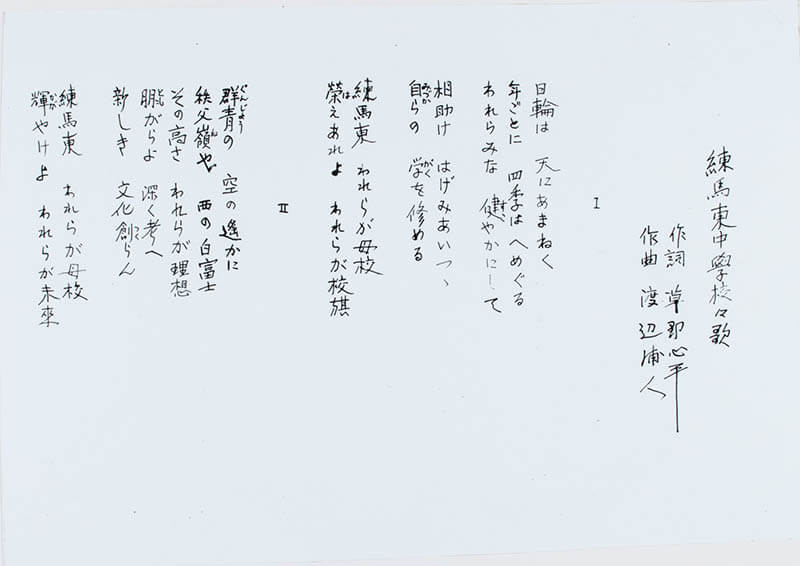 練馬東中學校々歌
作詞 草野心平
作曲 渡辺浦人
I
日輪は 天にあまねく
年ごとに 四季はへめぐる
われらみな 健やかにして
相助け はげみあいつゝ
自らの 学を修める
練馬東 われらが母校
榮えあれよ われらが校旗
II
群青の 空の遙かに
秩父嶺や 西の白富士
その高さ われらが理想
朋がらよ 深く考へ
新しき 文化創らん
練馬東 われらが母校
輝やけよ われらが未来